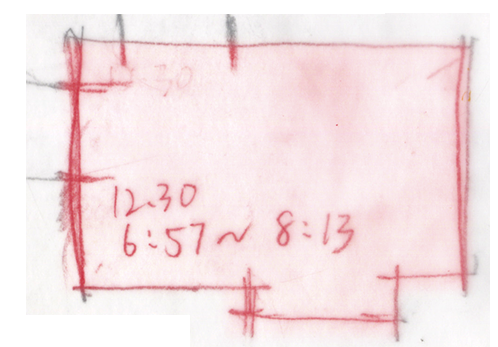 12.30
6:57~8:13